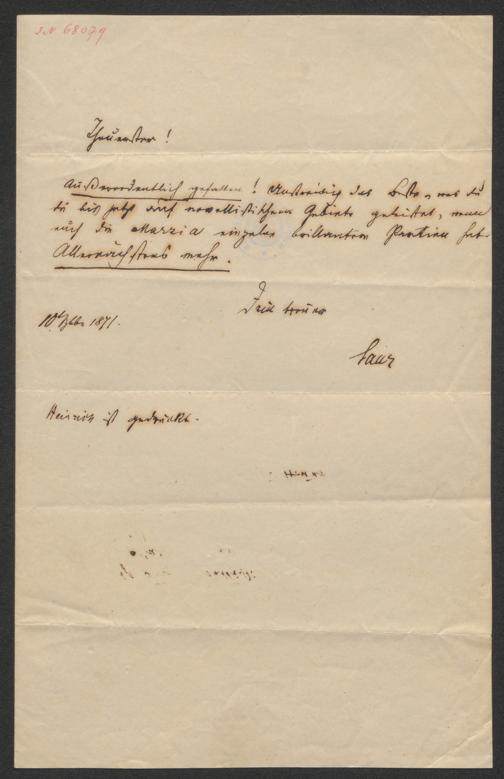 IN 68079
Theuerster!
Außerordentlich gefallen! Unstreitig das Beste, was du
du bis jetzt auf novellistischem Gebiete geleistet, wenn
auch die Marzia einzelne brillantere Partien hat.
Allernächstens mehr.
Dein treuer
10t 1871.
Heinrich ist gedruckt.